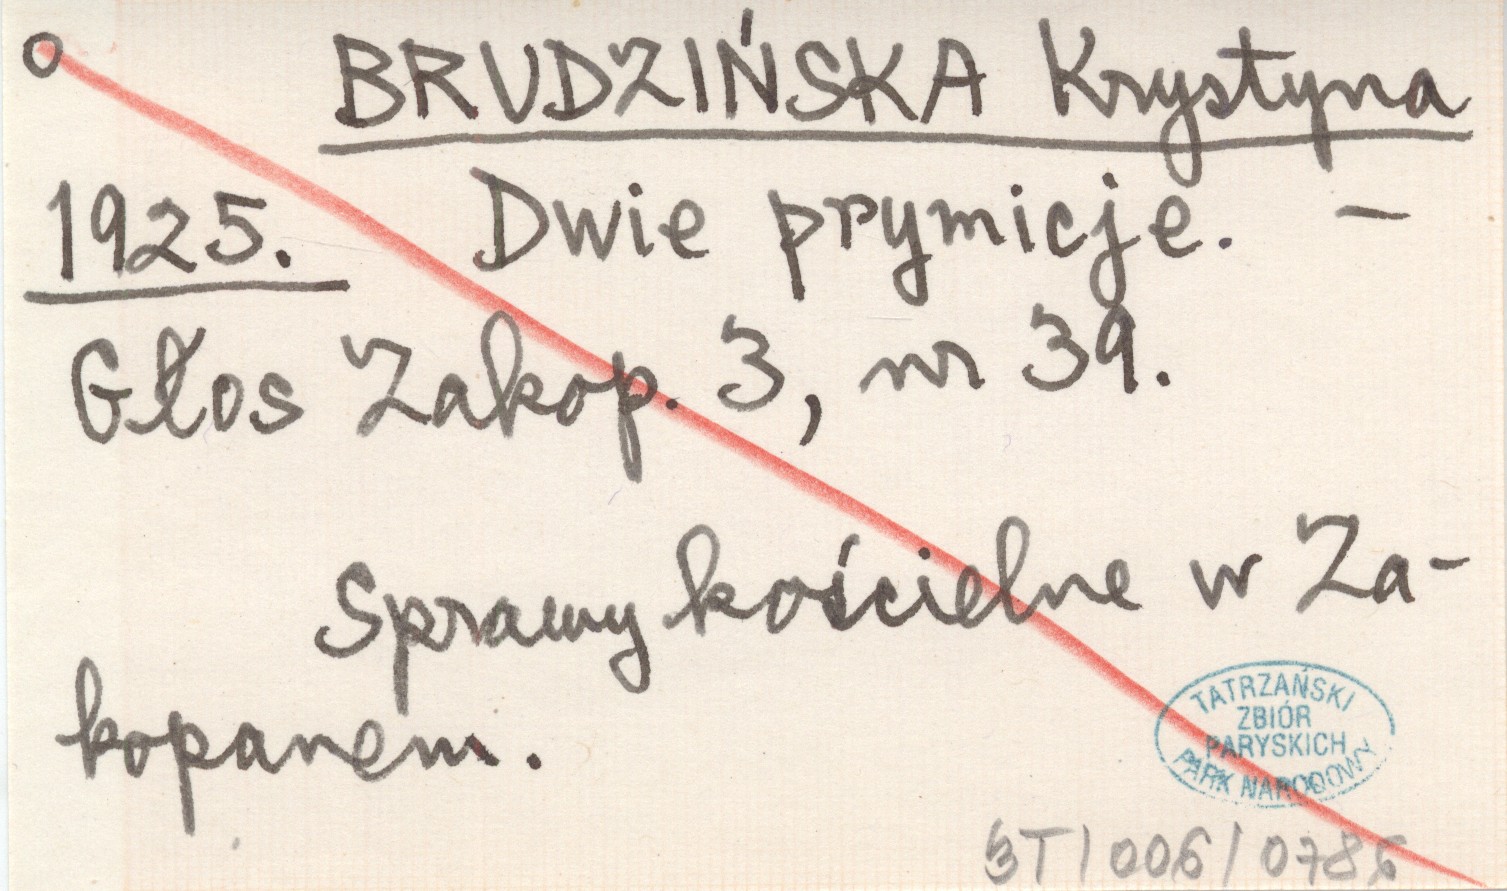 BRUDZIŃSKA Krystyna
1925. Dwie prymicje. –
Głos Zakop. 3, nr 39.
Sprawy kościelne w Za-
kopanem.
TATRZAŃSKI
ZBIÓR
PARYSKICH
PARK NARODOWY
3T/006/0786